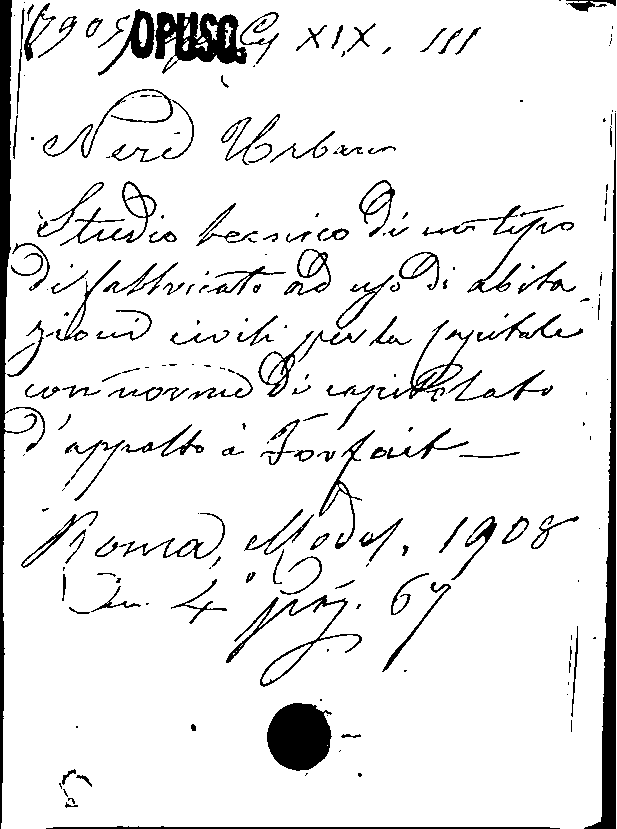 OPUSC. XIX. III
Neri Urbano
Studio tecnico di un tipo
di fabbricato ad uso di abita
zioni civili per la capitale
con norme di capitolato
d'appalto à Forfait —
Roma, Modes, 1908
in 4° pag. 67